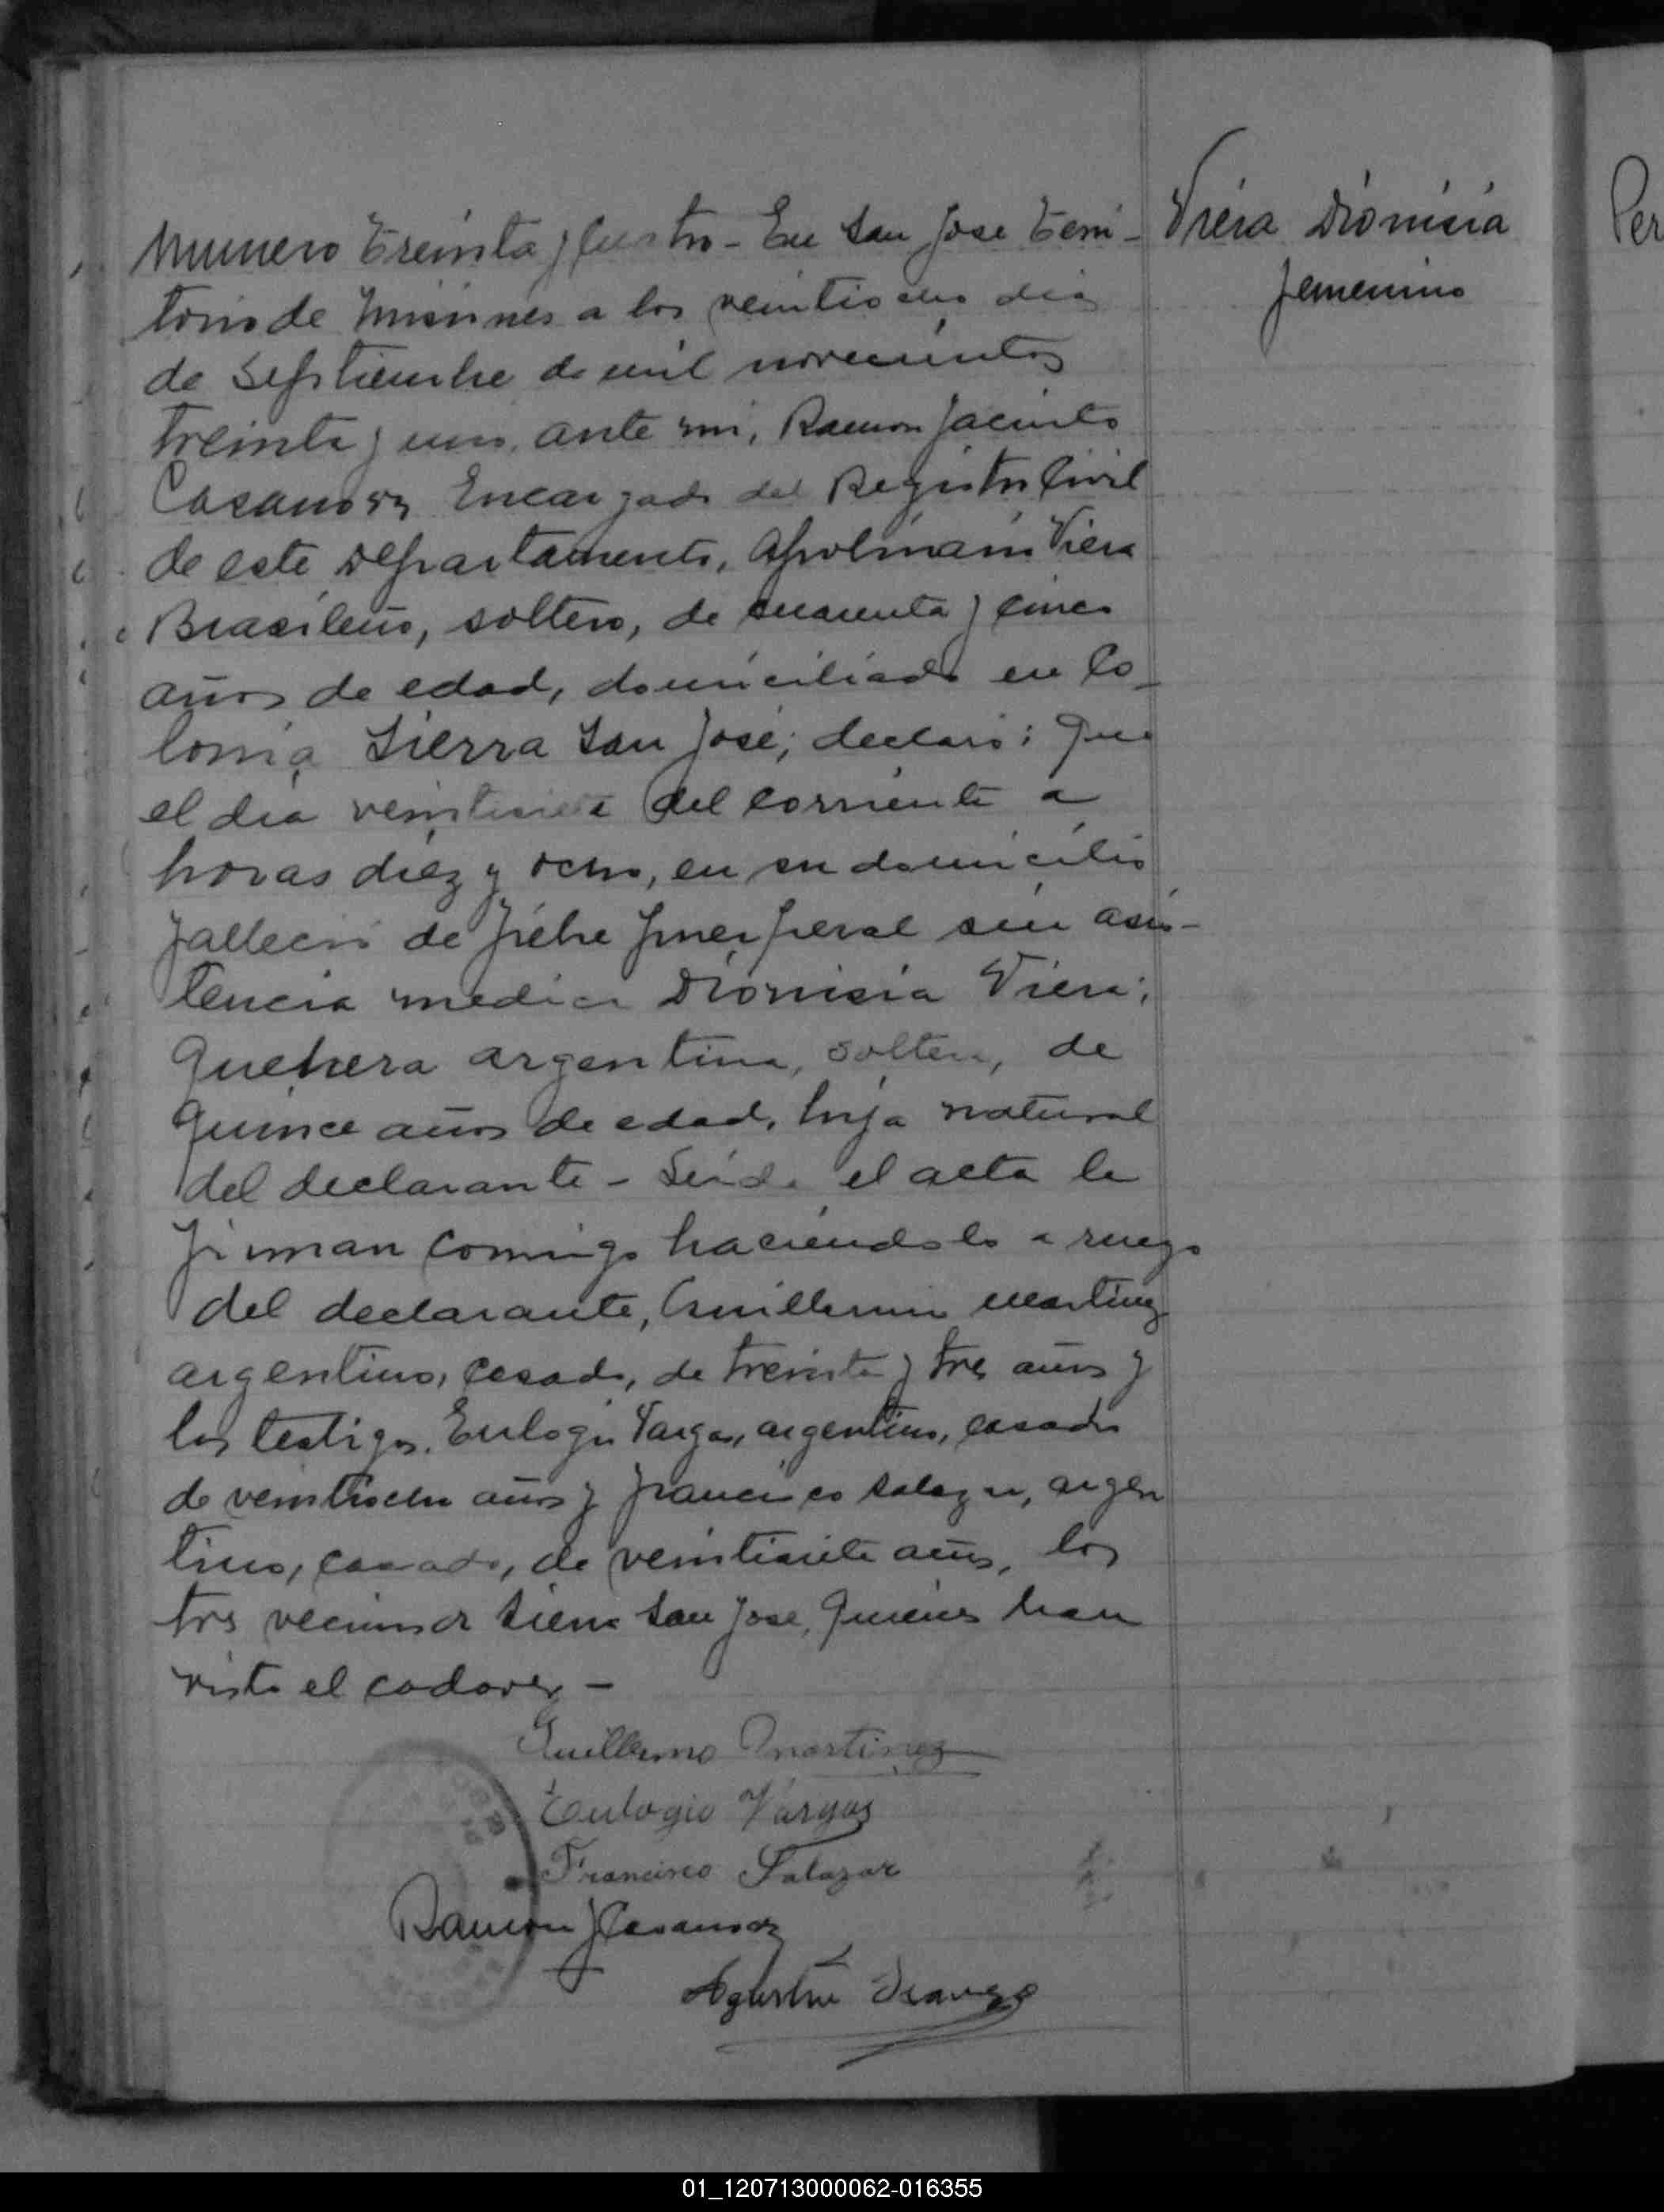 Numero Treinta y Cuatro - En San Jose Terri-
torio de Misiones a los veintiocho dias
de Septiembre de mil novecientos
treinta y uno, ante mi, Ramon Jacinto
Casanova Encargado del Registro Civil
de este Departamento, Apolinario Viera
Brasileño, soltero, de cuarenta y cinco
años de edad, domiciliado en Co-
lonia Sierra San José; declaró: Que
el dia veintisiete del corriente a
horas diez y ocho, en su domicilio
falleció de fiebre puerperal sin asis-
tencia medica Dionisia Viera;
Que era argentina, soltera, de
quince años de edad, hija natural
del declarante - Leida el acta la
firman comigo haciendolo a ruego
del declarante, Guillermo Martinez
argentino, casado, de treinta y tres años y
los testigos, Eulogio Vargas, argentino, casado
de veintiocho años y Francisco Salazar, argen
tino, casado, de veintisiete años, los
tres vecinos de Sierra San Jose, Quienes han
visto el cadaver -
Guillermo Martinez
Eulogio Vargas
Francisco Salazar
Ramon J Casanova
Agustin
Viera Dionisia
femenino
Per
01_120713000062-016355